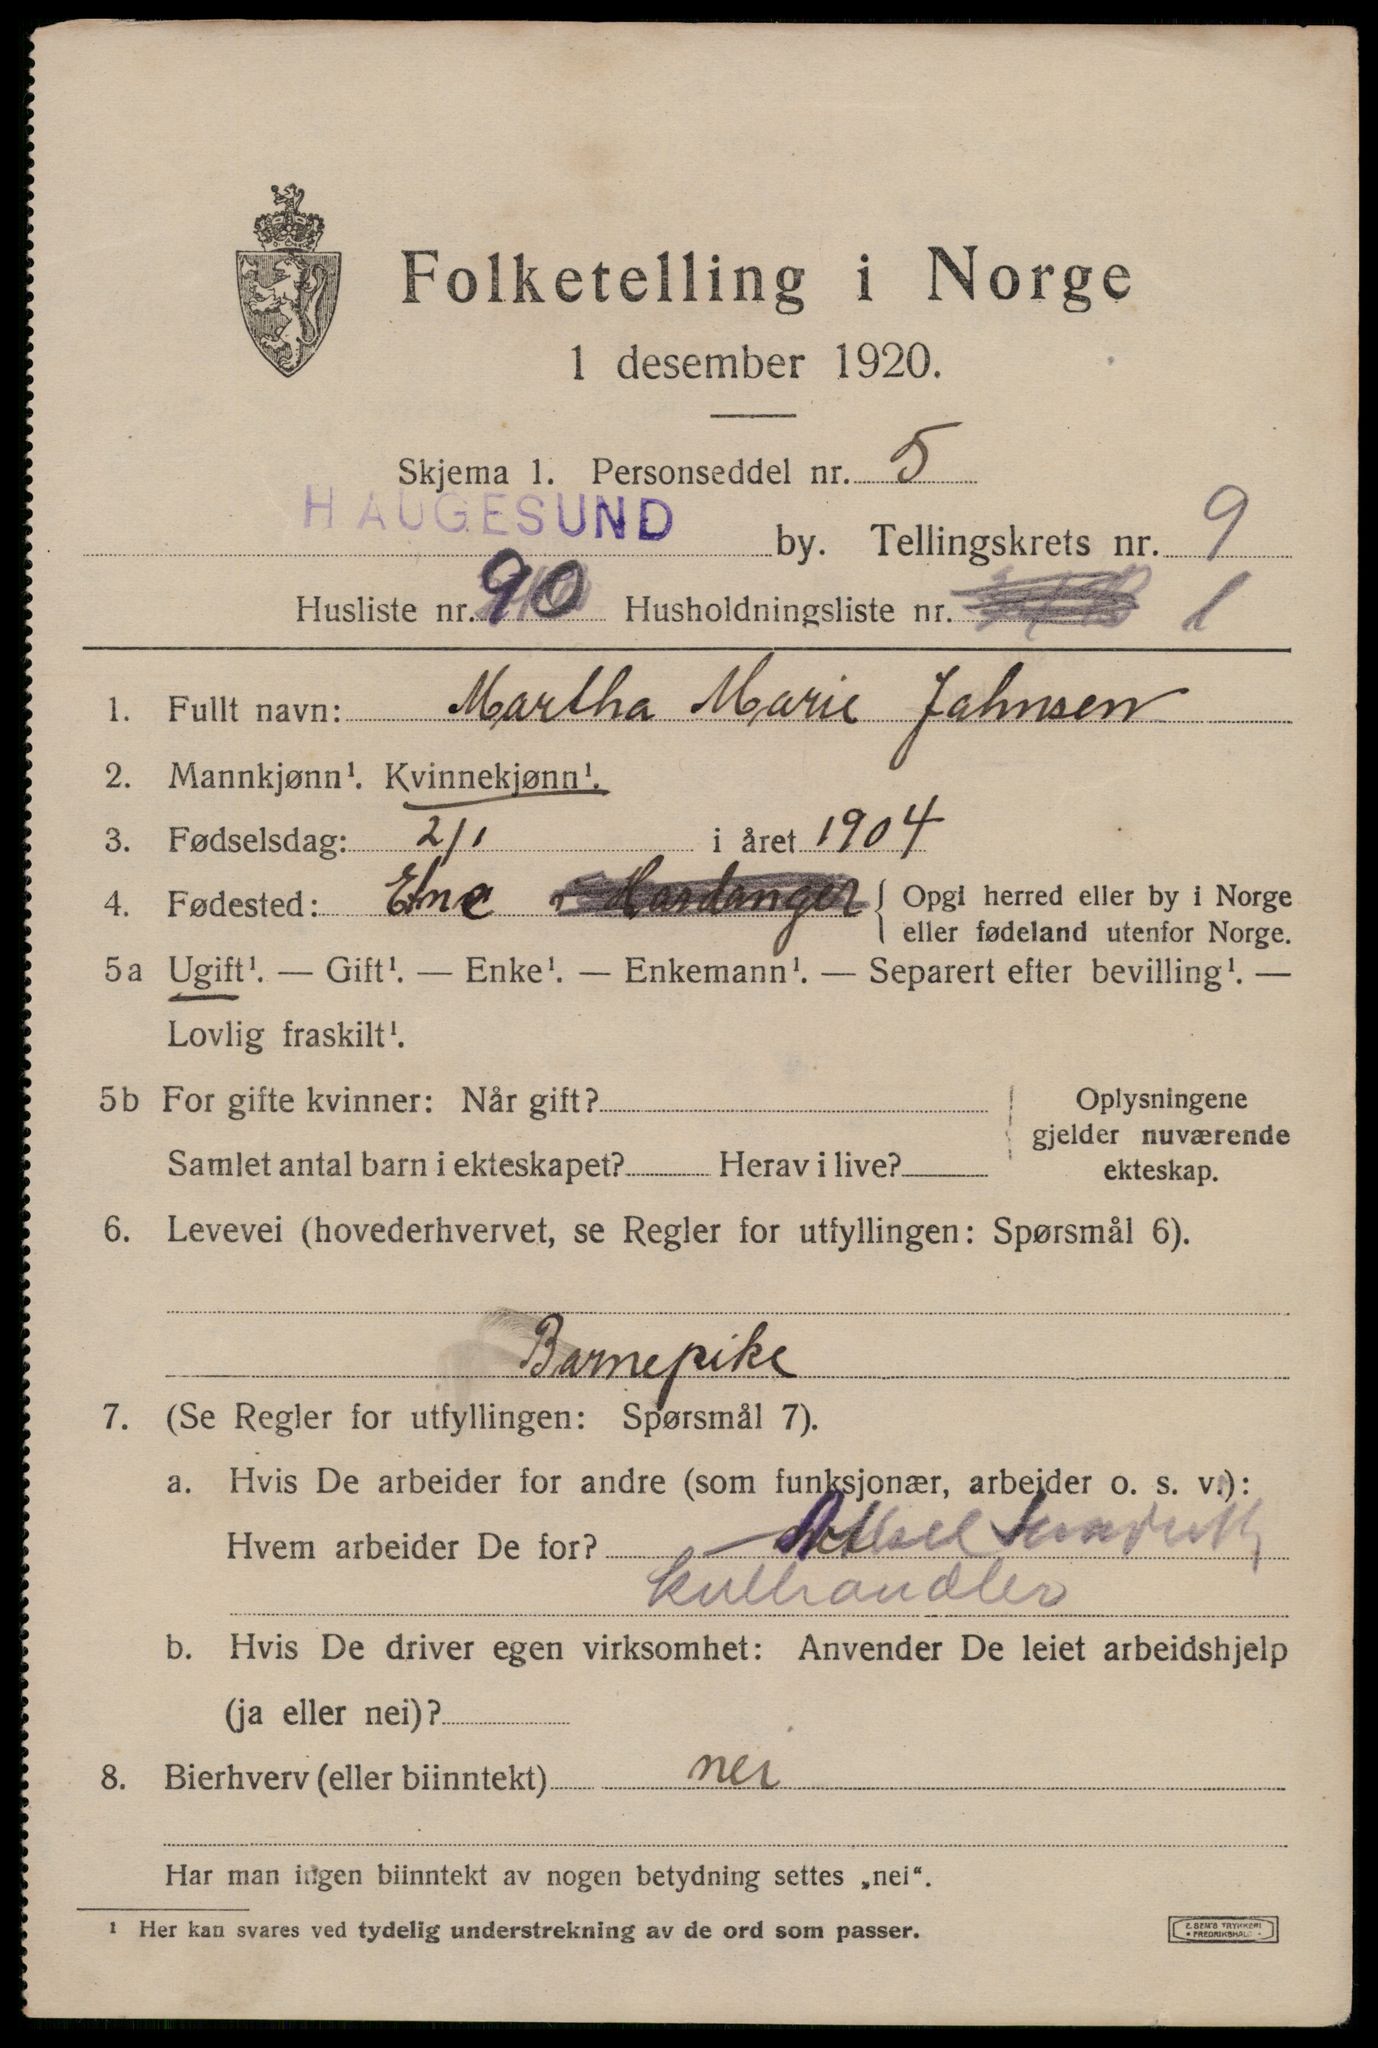 Folketelling i Norge
1 desember 1920.
Skjema 1. Personseddel nr. 5
HAUGESUND by. Tellingskrets nr. 9
Husliste nr. 90 Husholdningsliste nr. 1
1. Fullt navn: Martha Marie Jahnsen
2. Mannkjønn¹. Kvinnekjønn¹.
3. Fødselsdag: 2/1 i året 1904
4. Fødested: Etne i Hardanger { Opgi herred eller by i Norge
eller fødeland utenfor Norge.
5a Ugift¹. — Gift¹. — Enke¹. — Enkemann¹. — Separert efter bevilling¹. —
Lovlig fraskilt¹.
5b For gifte kvinner: Når gift?
Samlet antal barn i ekteskapet? Herav i live?
Oplysningene
gjelder nuværende
ekteskap.
6. Levevei (hovederhvervet, se Regler for utfyllingen: Spørsmål 6).
Barnepike
7. (Se Regler for utfyllingen: Spørsmål 7).
a. Hvis De arbeider for andre (som funksjonær, arbeider o. s. v.):
Hvem arbeider De for?
kulhandler
b. Hvis De driver egen virksomhet: Anvender De leiet arbeidshjelp
(ja eller nei)?
8. Bierhverv (eller biinntekt) nei
Har man ingen biinntekt av nogen betydning settes „nei“.
¹ Her kan svares ved tydelig understrekning av de ord som passer.
E. SEM'S TRYKKERI
• FREDRIKSHALD •